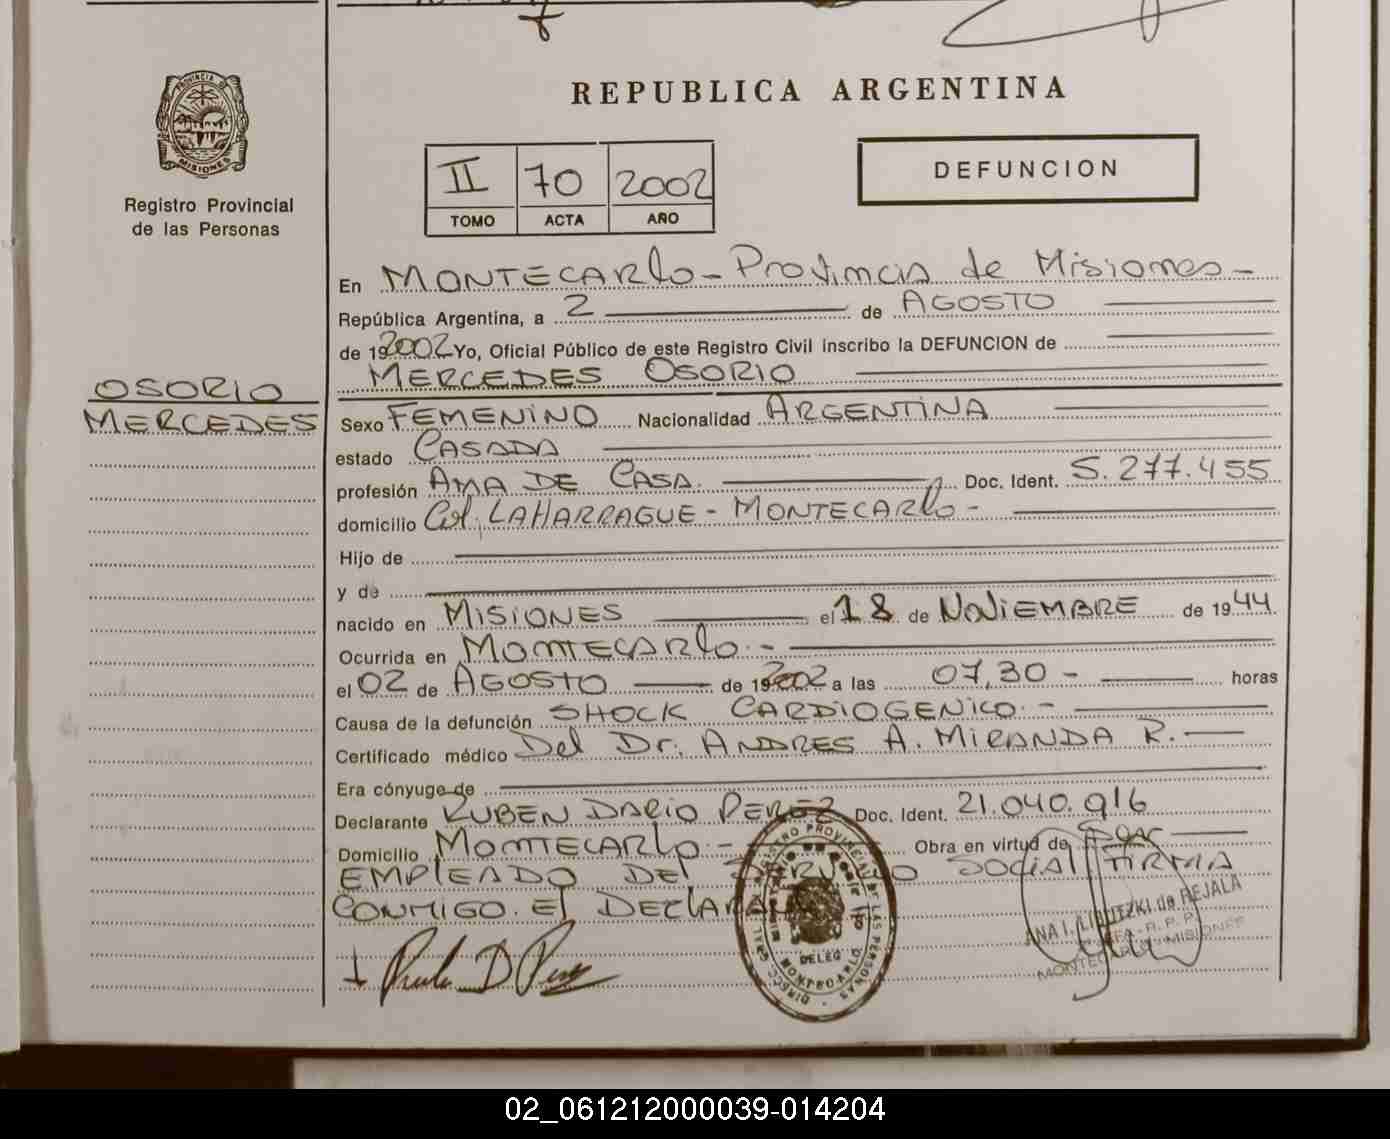 REPUBLICA ARGENTINA
PROVINCIA DE MISIONES
Registro Provincial
de las Personas
II 70 2002
TOMO ACTA AÑO
DEFUNCION
En MONTECARlo - Provincia de Misiones -
República Argentina, a 2 de AGOSTO
de 192002 Yo, Oficial Público de este Registro Civil inscribo la DEFUNCION de
MERCEDES OSORIO
OSORIO
MERCEDES
Sexo FEMENINO Nacionalidad ARGENTINA
estado CASADA
profesión AMA DE CASA. Doc. Ident. 5.277.455
domicilio Col. LAHARRAGUE - MONTECARlo -
Hijo de
y de
nacido en MISIONES el 18 de NOVIEMBRE de 1944.
Ocurrida en MONTECARlo. -
el 02 de AGOSTO de 192002 a las 07,30 - horas
Causa de la defunción SHOCK CARDIOGENICO. -
Certificado médico Del Dr. ANDRES A. MIRANDA R. -
Era cónyuge de
Declarante RUBEN DARIO PEREZ Doc. Ident. 21.040.916
Domicilio MONTECARlo - Obra en virtud de Ser
EMPLEADO DEL SERVICIO SOCIAL FIRMA
CONMIGO. El DEClARANTE
ANA I. de REJALA
MONTECARLO MISIONES
DIRECC. GRAL. REGISTRO PROVINCIAL DE LAS PERSONAS
DELEG
MONTECARLO
02_061212000039-014204